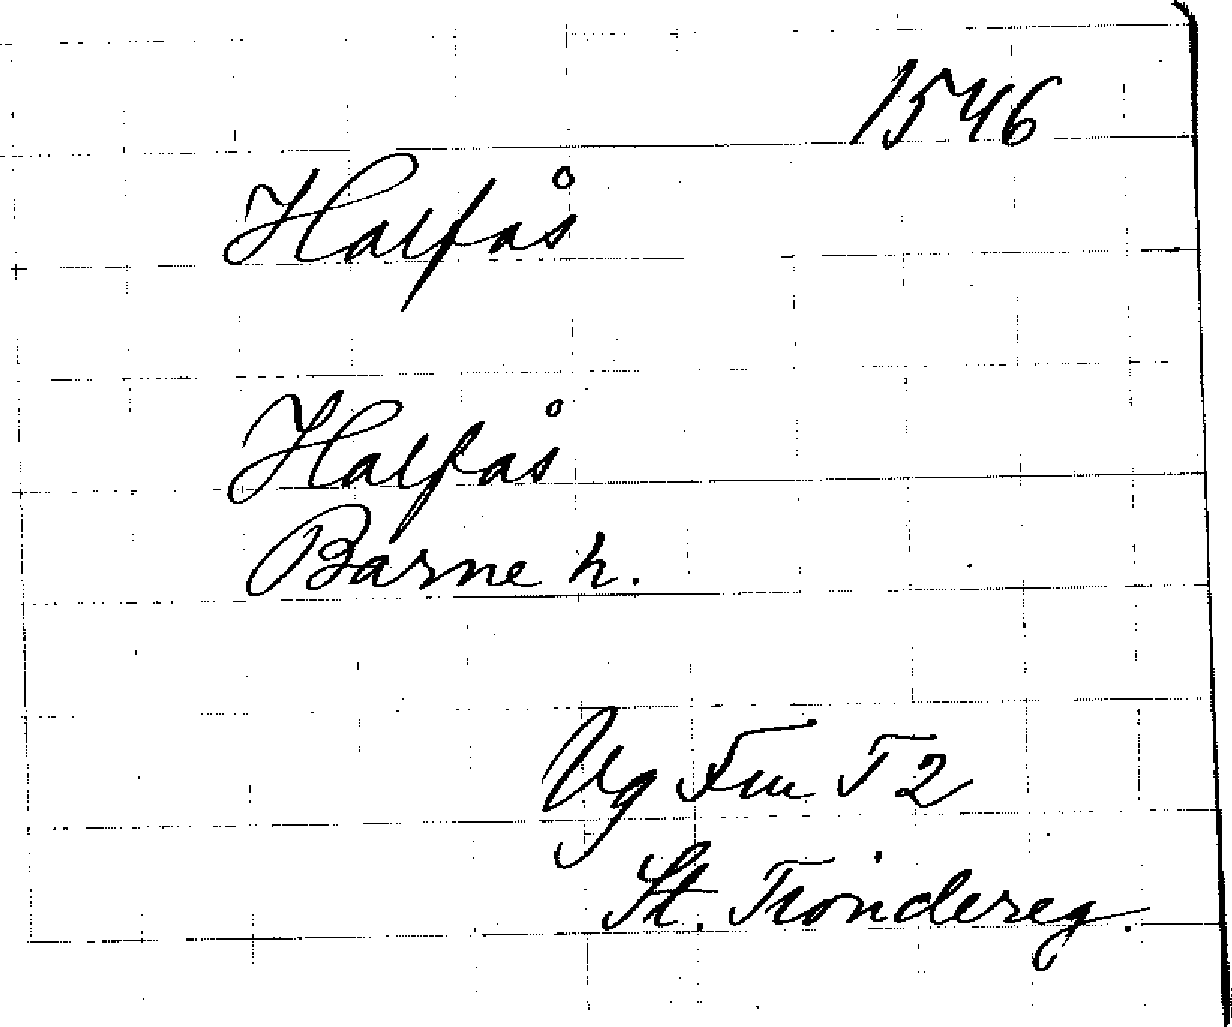 1546
Halfås
Halfås
Barne h.
Ug Fm T2
St. Tröndereg.